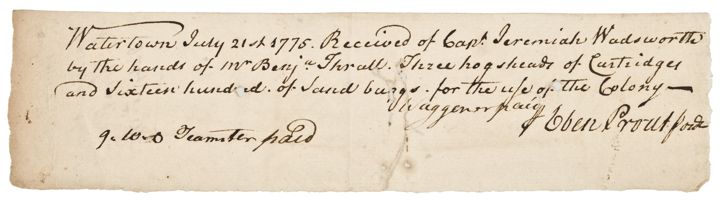 Watertown July 21st 1775. Received of Capt Jeremiah Wadsworth
by the hands of Mr Benja Thrall. Three hogsheads of Cartridges
and Sixteen hundred. of Sand baggs. for the use of the Colony —
Waggoner paid
Eben Prout
Teamster paid